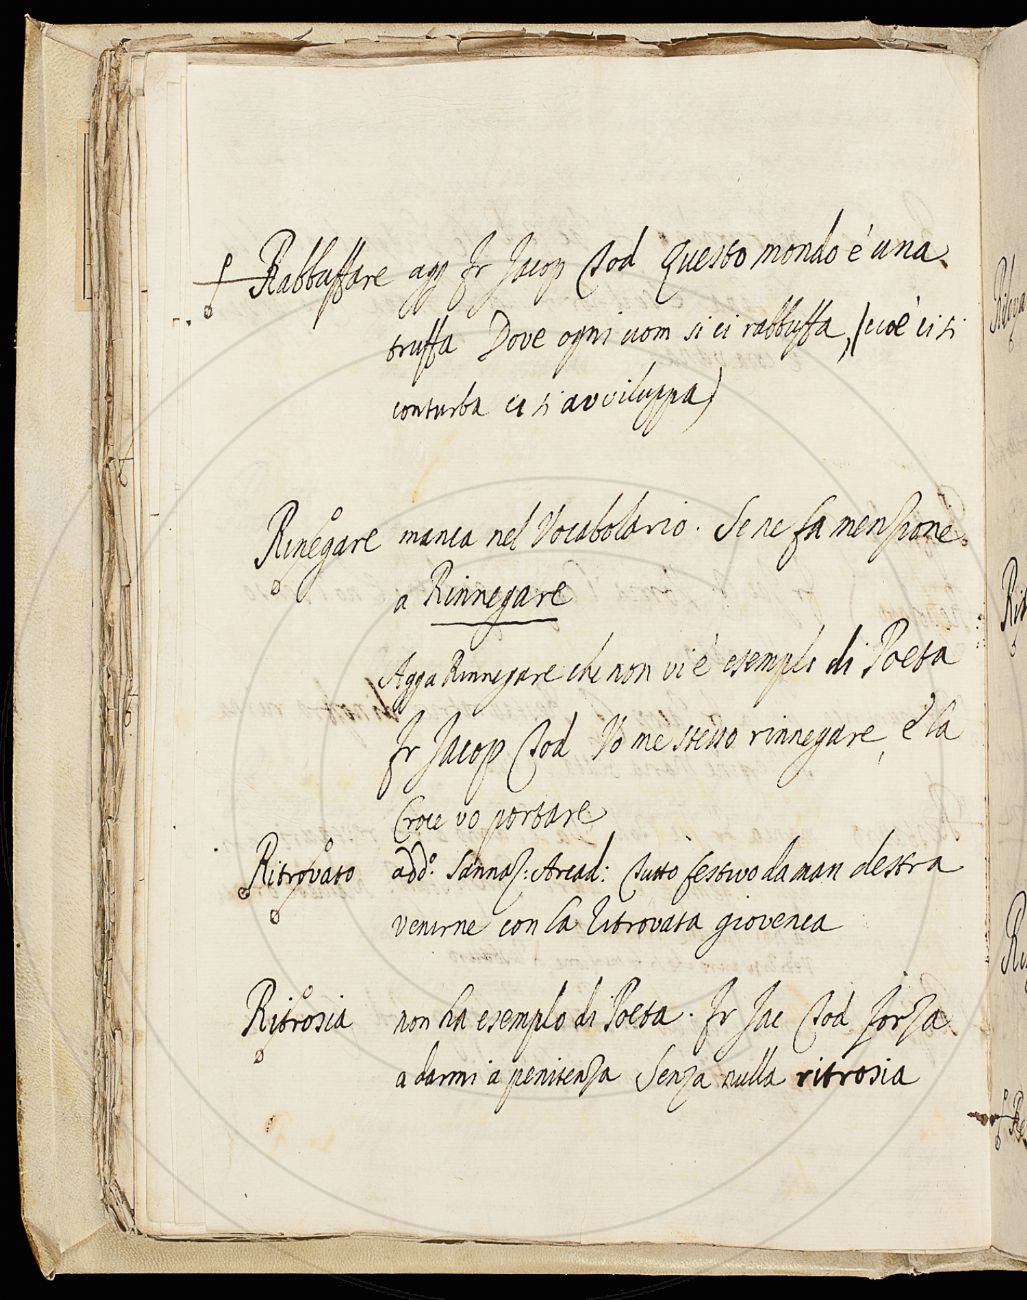 Rabbuffare agg Fr Jacop Tod Questo mondo è una
truffa Dove ogni uom si ci rabbuffa, (cioè ci si
conturba ci si avviluppa)
Rinegare manca nel Vocabolario. Se ne fa menzione
a Rinnegare
Agg a Rinnegare che non vi è esemplo di Poeta
Fr Jacop Tod Vo me stesso rinnegare, e la
Croce vo portare
Ritrovato add.º Sannaz: Arcad: Tutto festivo da man destra
venirne con la ritrovata giovenca
Ritrosia non ha esemplo di Poeta. Fr Jac Tod Forza
a darmi a penitenza Senza nulla ritrosia